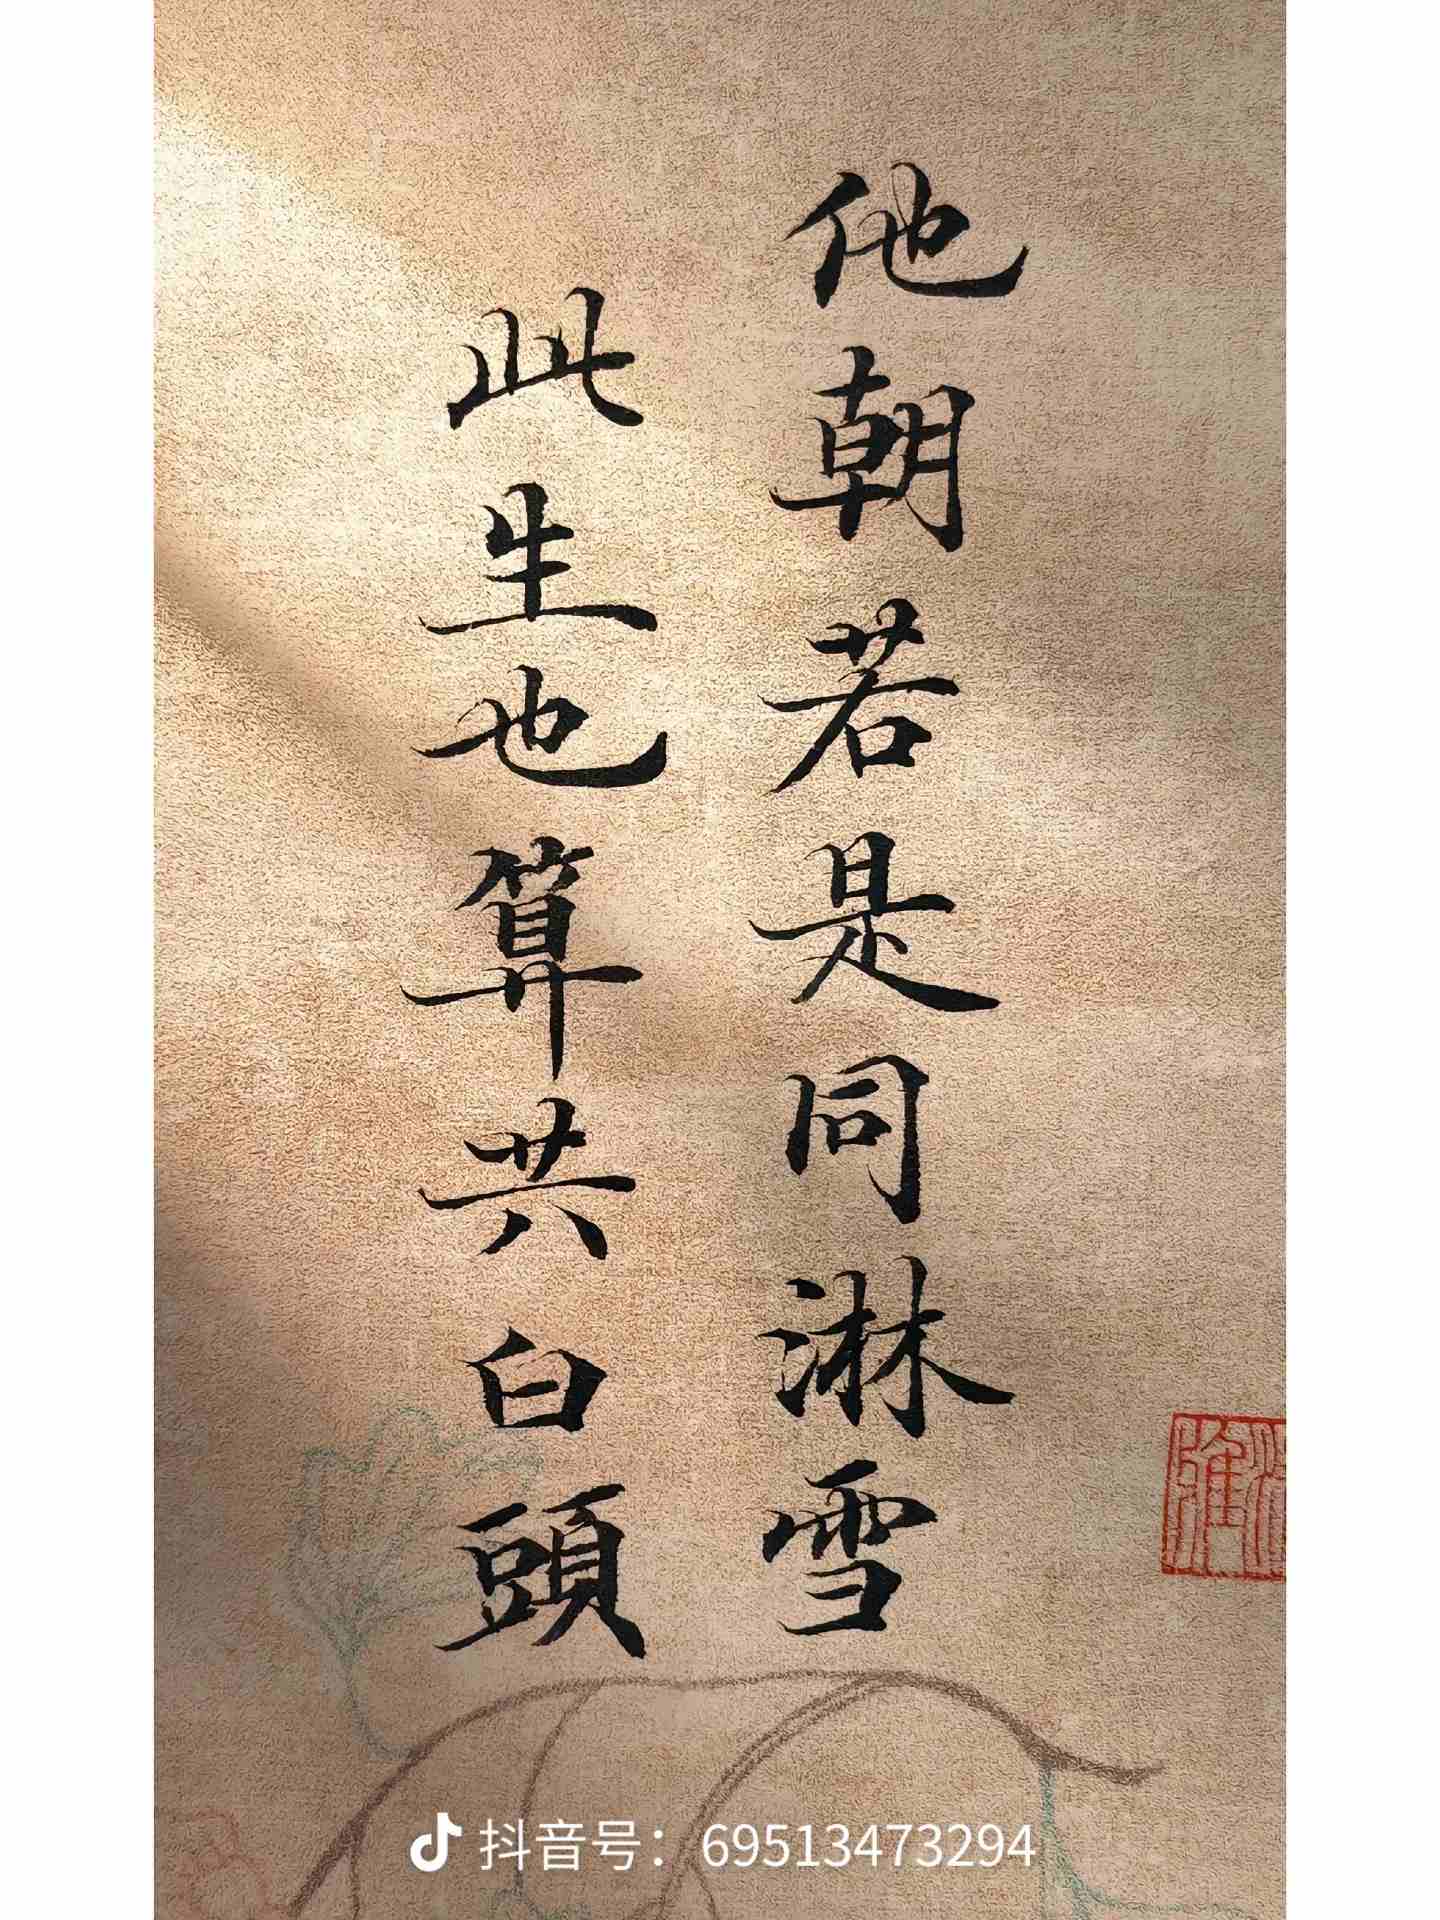 他朝若是同淋雪
此生也算共白頭
抖音号：69513473294